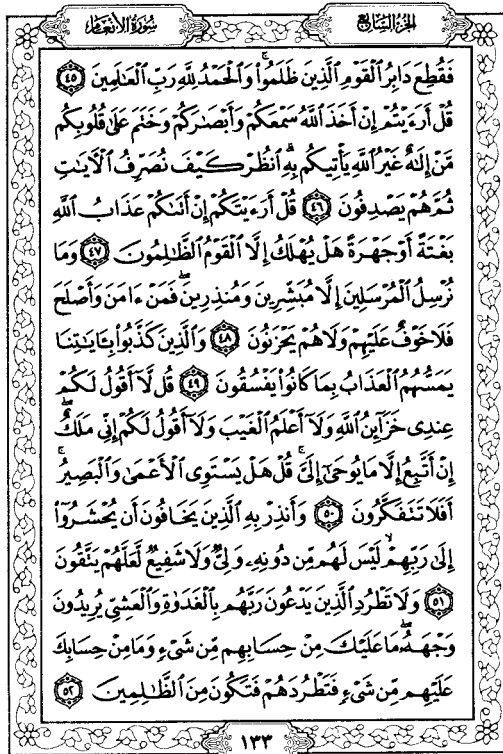 سُورَةُ الأَنْعَامِ
الجُزْءُ السَّابِعُ
فَقُطِعَ دَابِرُ الْقَوْمِ الَّذِينَ ظَلَمُوا۟ ۚ وَالْحَمْدُ لِلَّهِ رَبِّ الْعَٰلَمِينَ ٤٥
قُلْ أَرَءَيْتُمْ إِنْ أَخَذَ اللَّهُ سَمْعَكُمْ وَأَبْصَٰرَكُمْ وَخَتَمَ عَلَىٰ قُلُوبِكُم
مَّنْ إِلَٰهٌ غَيْرُ اللَّهِ يَأْتِيكُم بِهِ ۗ انظُرْ كَيْفَ نُصَرِّفُ الْءَايَٰتِ
ثُمَّ هُمْ يَصْدِفُونَ ٤٦ قُلْ أَرَءَيْتَكُمْ إِنْ أَتَىٰكُمْ عَذَابُ اللَّهِ
بَغْتَةً أَوْ جَهْرَةً هَلْ يُهْلَكُ إِلَّا الْقَوْمُ الظَّٰلِمُونَ ٤٧ وَمَا
نُرْسِلُ الْمُرْسَلِينَ إِلَّا مُبَشِّرِينَ وَمُنذِرِينَ ۖ فَمَنْ ءَامَنَ وَأَصْلَحَ
فَلَا خَوْفٌ عَلَيْهِمْ وَلَا هُمْ يَحْزَنُونَ ٤٨ وَالَّذِينَ كَذَّبُوا۟ بِـَٔايَٰتِنَا
يَمَسُّهُمُ الْعَذَابُ بِمَا كَانُوا۟ يَفْسُقُونَ ٤٩ قُل لَّا أَقُولُ لَكُمْ
عِندِى خَزَآئِنُ اللَّهِ وَلَا أَعْلَمُ الْغَيْبَ وَلَا أَقُولُ لَكُمْ إِنِّى مَلَكٌ ۖ
إِنْ أَتَّبِعُ إِلَّا مَا يُوحَىٰ إِلَىَّ ۚ قُلْ هَلْ يَسْتَوِى الْأَعْمَىٰ وَالْبَصِيرُ ۚ
أَفَلَا تَتَفَكَّرُونَ ٥٠ وَأَنذِرْ بِهِ الَّذِينَ يَخَافُونَ أَن يُحْشَرُوٓا۟
إِلَىٰ رَبِّهِمْ ۙ لَيْسَ لَهُم مِّن دُونِهِۦ وَلِىٌّ وَلَا شَفِيعٌ لَّعَلَّهُمْ يَتَّقُونَ
٥١ وَلَا تَطْرُدِ الَّذِينَ يَدْعُونَ رَبَّهُم بِالْغَدَوٰةِ وَالْعَشِىِّ يُرِيدُونَ
وَجْهَهُۥ ۖ مَا عَلَيْكَ مِنْ حِسَابِهِم مِّن شَىْءٍ وَمَا مِنْ حِسَابِكَ
عَلَيْهِم مِّن شَىْءٍ فَتَطْرُدَهُمْ فَتَكُونَ مِنَ الظَّٰلِمِينَ ٥٢
١٣٣